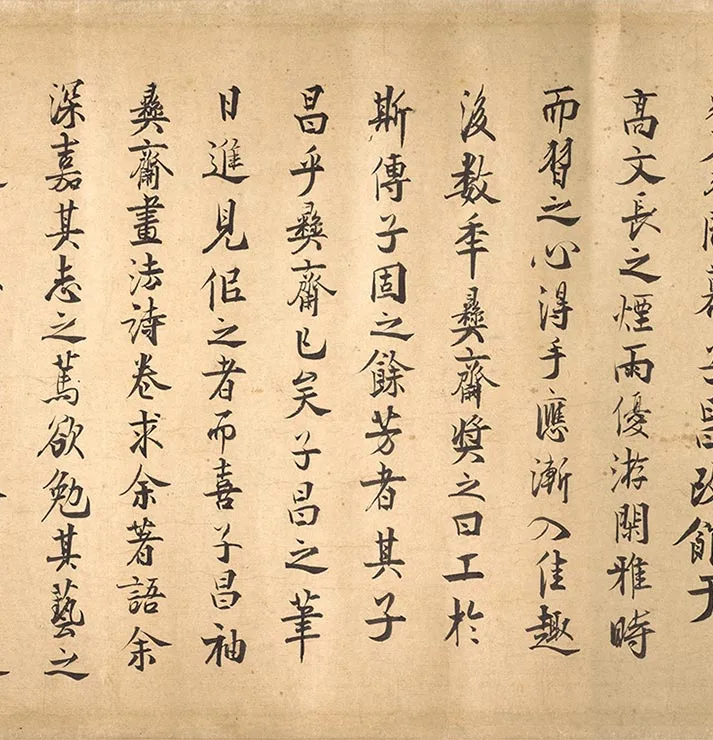 慕子昌改館于
高文長之煙雨優游閑雅時
而習之心得手應漸入佳趣
後数秊彛齋奬之曰工於
斯傳子固之餘芳者其子
昌乎彛齋已矣子昌之筆
日進見佀之者而喜子昌袖
彛齋畫法詩卷求余著語余
深嘉其志之篤欲勉其藝之